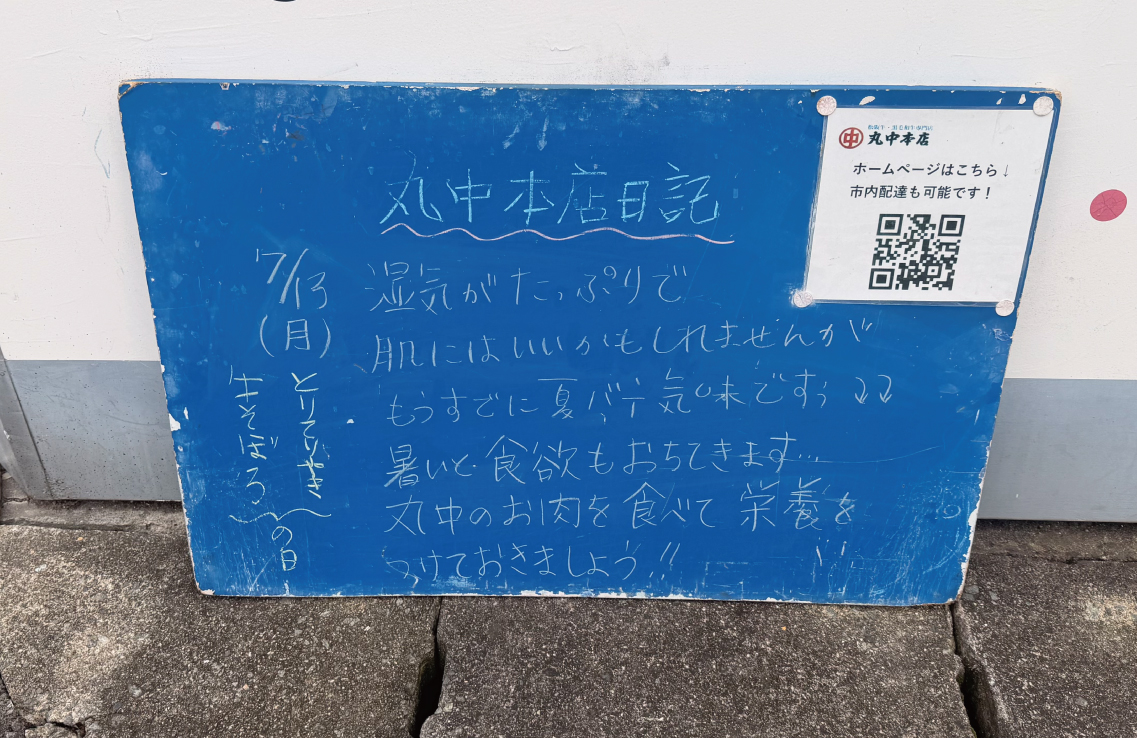 丸中本店日記
7/13
(月)
とりてりやき
牛そぼろ
の日
湿気がたっぷりで
肌にはいいかもしれませんが
もうすでに夏バテ気味ですぅ⤵⤵
暑いと食欲もおちてきます…
丸中のお肉を食べて栄養を
つけておきましょう!!
松阪牛・黒毛和牛専門店
中 丸中本店
ホームページはこちら↓
市内配達も可能です!